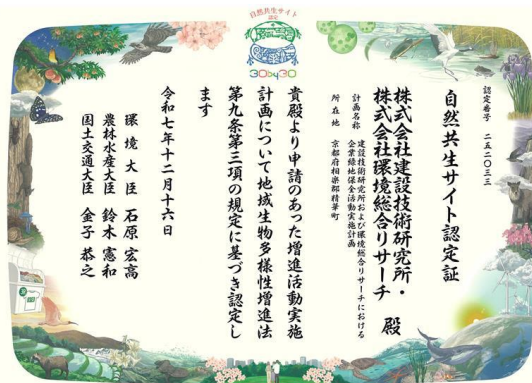 自然共生サイト
認定
30by30
認定番号 二五二〇三三
自然共生サイト認定証
株式会社建設技術研究所・
株式会社環境総合リサーチ 殿
計画名称 建設技術研究所および環境総合リサーチにおける
企業緑地保全活動実施計画
所在地 京都府相楽郡精華町
貴殿より申請のあった増進活動実施
計画について地域生物多様性増進法
第九条第三項の規定に基づき認定し
ます
令和七年十二月十六日
環境大臣 石原宏高
農林水産大臣 鈴木憲和
国土交通大臣 金子恭之